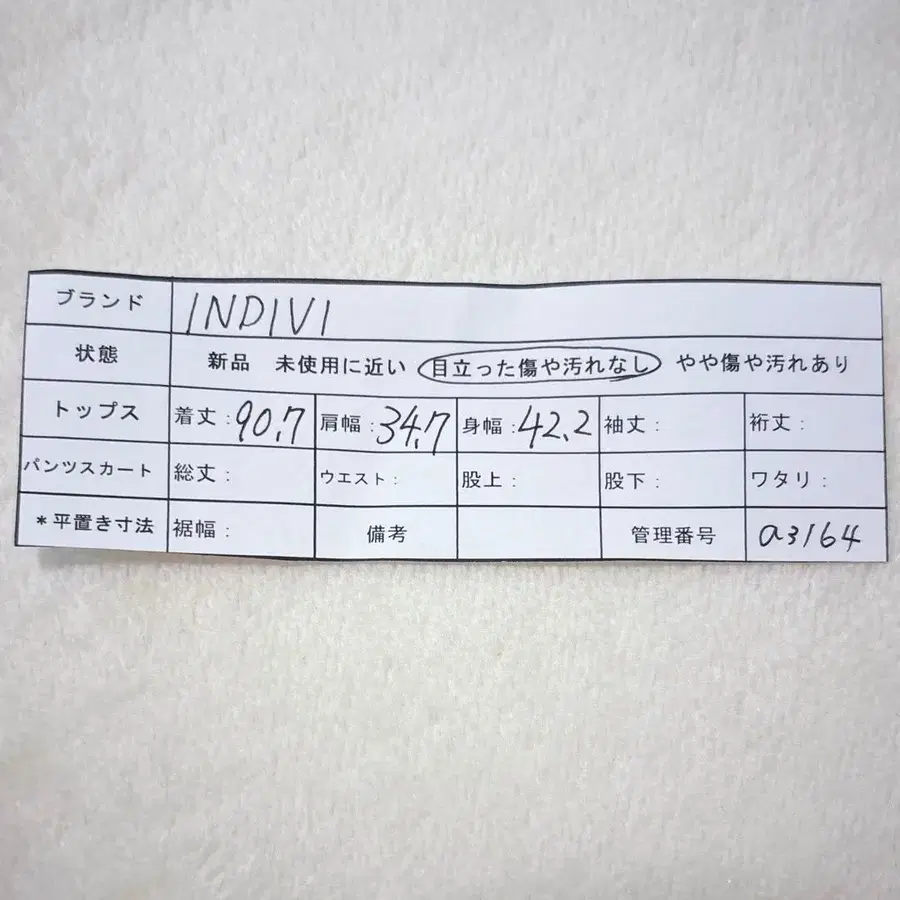 ブランド INDIVI
状態 新品 未使用に近い 目立った傷や汚れなし やや傷や汚れあり
トップス 着丈:90.7 肩幅:34.7 身幅:42.2 袖丈: 裄丈:
パンツスカート 総丈: ウエスト: 股上: 股下: ワタリ:
*平置き寸法 裾幅: 備考 管理番号 a3164